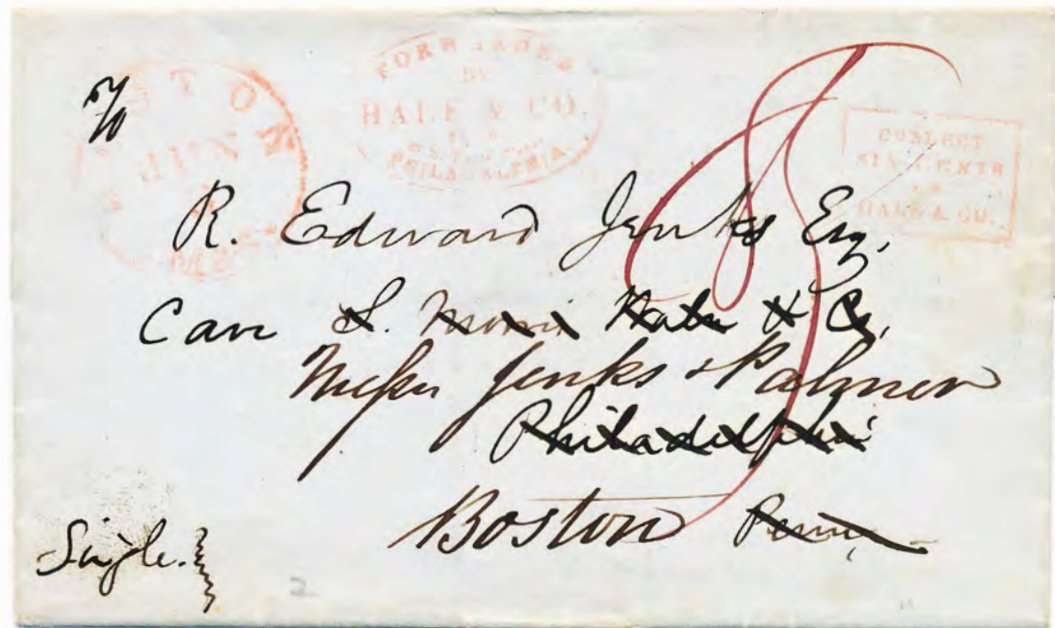 BOSTON
JUN
FORWARDED
BY
HALE & CO.
PHILADALPHIA
COLLECT
SIX CENTS
HALE & CO.
R. Edward Jenks Esq,
Care S. Morris & Co,
Jenks & Palmer
Philadelphia
Boston Penn,
Single.
2